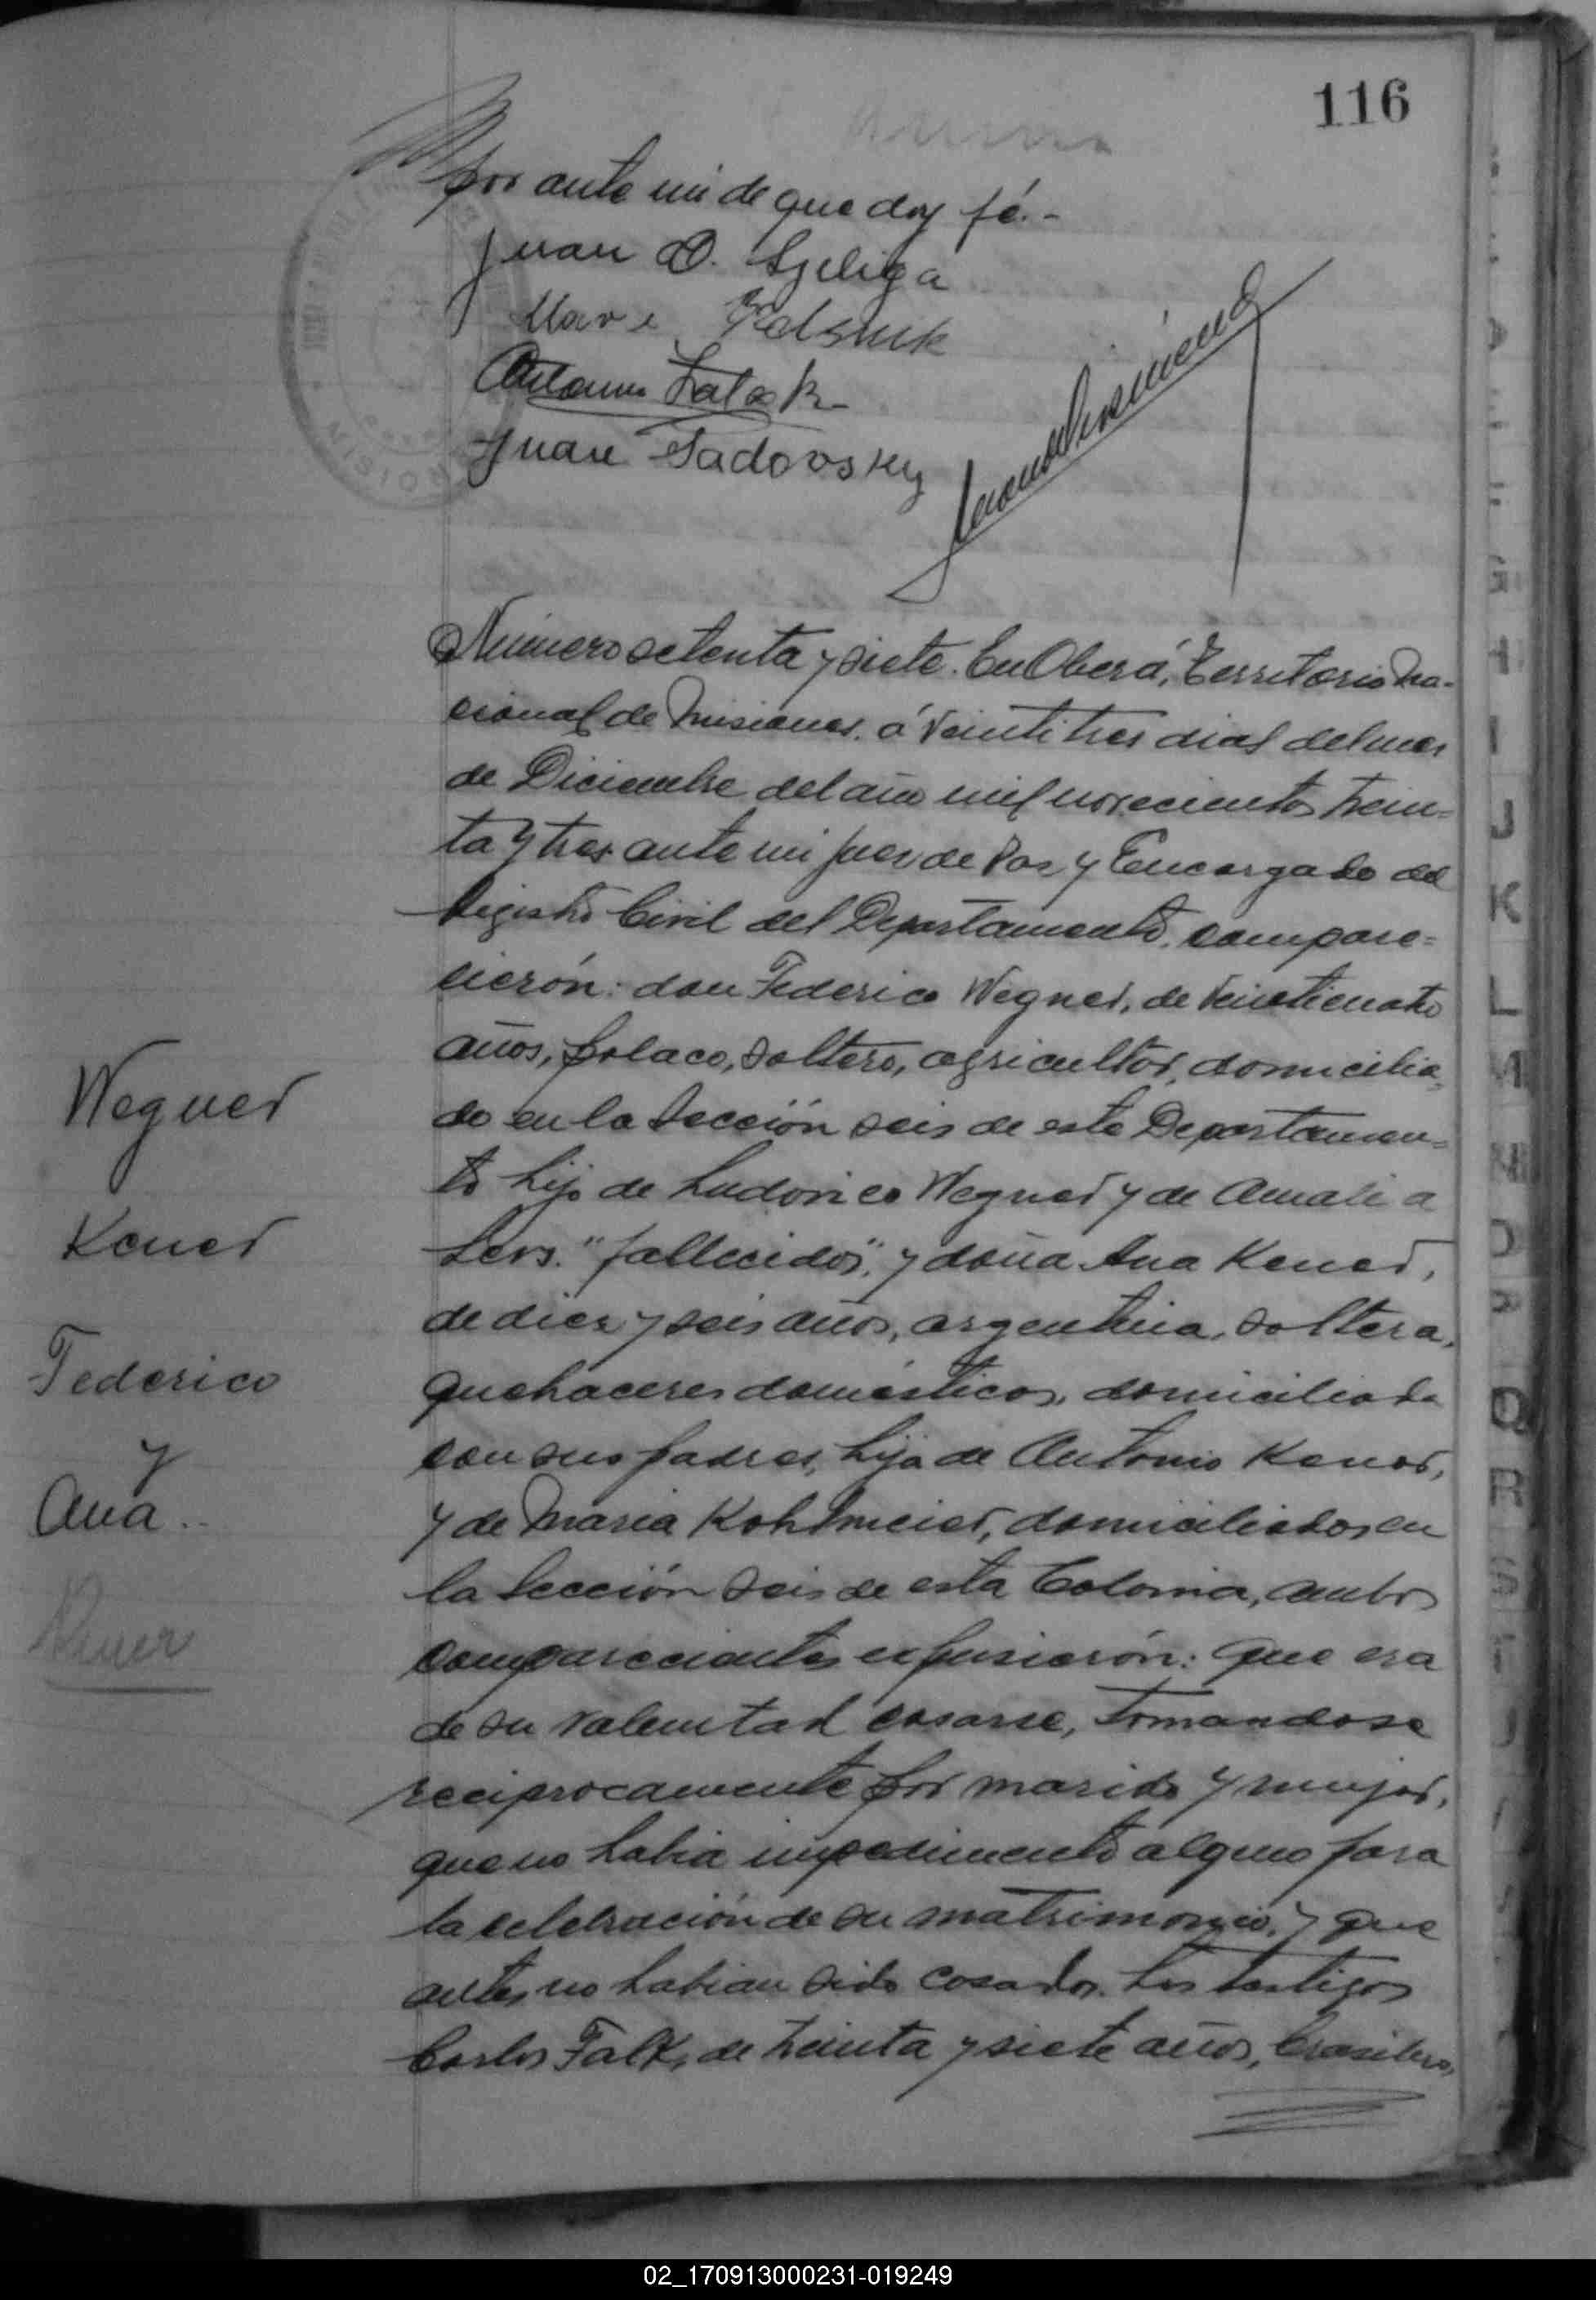 116
por ante mi de que doy fé.-
Juan O. Szeliga
Juan Sadovsky
Número setenta y siete. En Oberá, Territorio Na-
cional de Misiones, á veintitres dias del mes
de Diciembre del año mil novecientos trein-
ta y tres ante mi Juez de Paz y Encargado del
Registro Civil del Departamento, compare-
cierón: don Federico Wegner, de veinticuatro
años, polaco, soltero, agricultor, domicilia-
do en la Sección seis de este Departamen-
to hijo de Ludovico Wegner y de Amalia
"fallecidos", y doña Ana Kener,
de diez y seis años, argentina, soltera,
quehaceres domésticos, domiciliada
con sus padres, hija de Antonio Kener,
y de Maria Kohlmeier, domiciliados en
la Sección seis de esta Colonia, ambos
comparecientes expusierón: que era
de su voluntad casarse, tomandose
reciprocamente por marido y mujer,
que no habia impedimento alguno para
la celebración de su matrimonio, y que
antes no habian sido casados. Los testigos
Carlos Falk, de treinta y siete años, brasilero,
Wegner
Kener
Federico
y
Ana..
Kener
G
H
I
J
K
L
M
N
O
P
Q
R
S
T
U
02_170913000231-019249